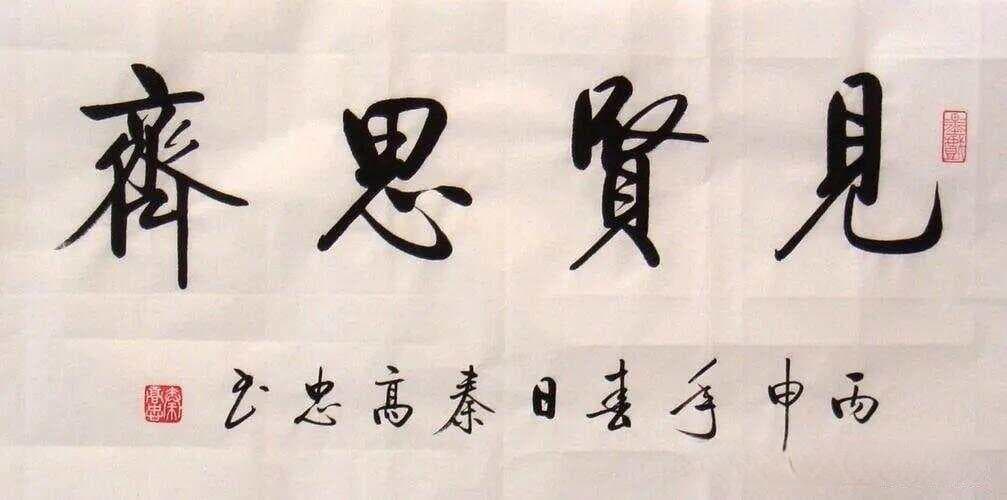 見賢思齊
丙申年春日秦高忠书